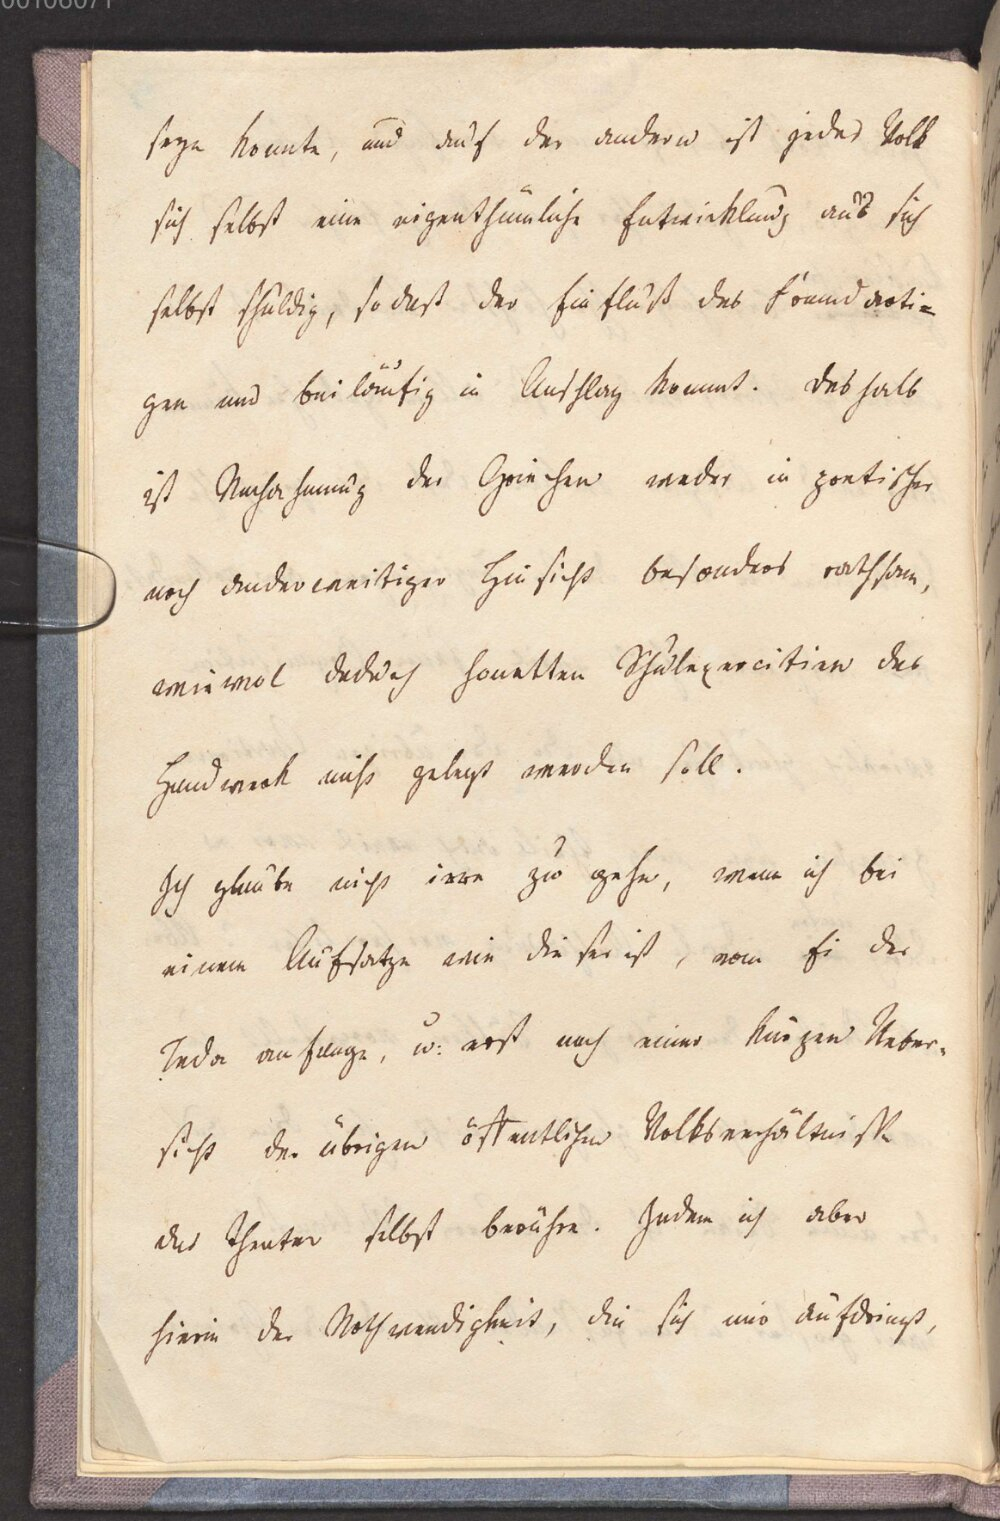 00106071
seyn konnte, und auf der andern ist jedes Volk
sich selbst eine eigenthümliche Entwicklung aus sich
selbst schuldig, so dast der Einflust des Fremdarti-
gen nur beiläufig in Anschlag kommt. Deshalb
ist Nachahmung der Griechen weder in poetischer
noch anderweitiger Hinsicht besonders rathsam,
wiewol dadurch honetten Schulexercitien das
Handwerk nicht gelegt werden soll.
Ich glaube nicht irre zu gehn, wenn ich bei
einem Aufsatze wie dieser ist, vom Ei der
Leda anfange, u: erst nach einer kurzen Ueber-
sicht der übrigen öffentlichen Volksverhältnisse
das Theater selbst berühre. Indem ich aber
hierin der Nothwendigkeit, die sich mir aufdringt,